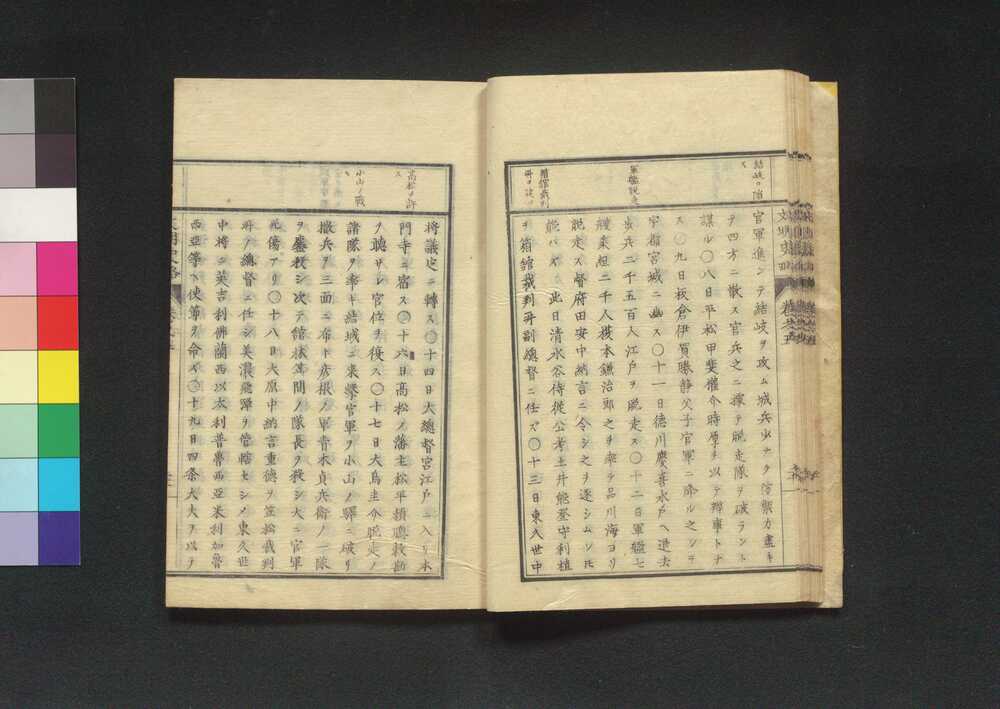 結城ヲ陷
官軍進ンテ結城ヲ攻ム城兵少ナク防禦力盡キ
テ四方ニ散ス官兵之ニ據テ脱走隊ヲ破ラント
謀ル〇八日平松甲斐權介時厚ヲ以テ辨事トナ
ス〇九日板倉伊賀勝靜父子官軍ニ降ル之ヲ
宇都宮城ニ幽ス〇十一日德川慶喜水戸ヘ退去
軍艦脱走
歩兵二千五百人江戸ヲ脱走ス〇十二日軍艦七
艘乗組二千人榎本鎌治郎之ヲ率テ品川海ヨリ
脱走ス督府田安中納言ニ令シ之ヲ逐シムレ𪜈
能ハス〇此日清水谷侍從公考土井能登守利恒
箱館裁判
所ヲ設ク
ヲ箱館裁判所副總督ニ任ス〇十三日東久世中
將議定ニ轉ス〇十四日大總督宮江戸ニ入リ本
高松ヲ許
ス
門寺ニ宿ス〇十六日高松ノ藩主松平頼聰救勘
ヲ聽サレ官位ヲ復ス〇十七日大鳥圭介脱走ノ
小山ノ戰
諸隊ヲ率ヰ結城ニ來撃官軍ヲ小山ノ驛ニ破リ
撒兵ヲ三面ニ布キ彦根ノ軍青木貞兵衛ノ一隊
ヲ鏖殺シ次テ館林笠間ノ隊長ヲ殺シ大ニ官軍
死傷アリ〇十八日大原中納言重德ヲ笠松裁判
所ノ總督ニ任シ美濃飛驒ヲ管轄セシメ東久世
中將ニ英吉利佛蘭西以太利普魯西亞米利加魯
西亞等ヘ使節ヲ命ス〇十九日四条大夫ヲ以テ